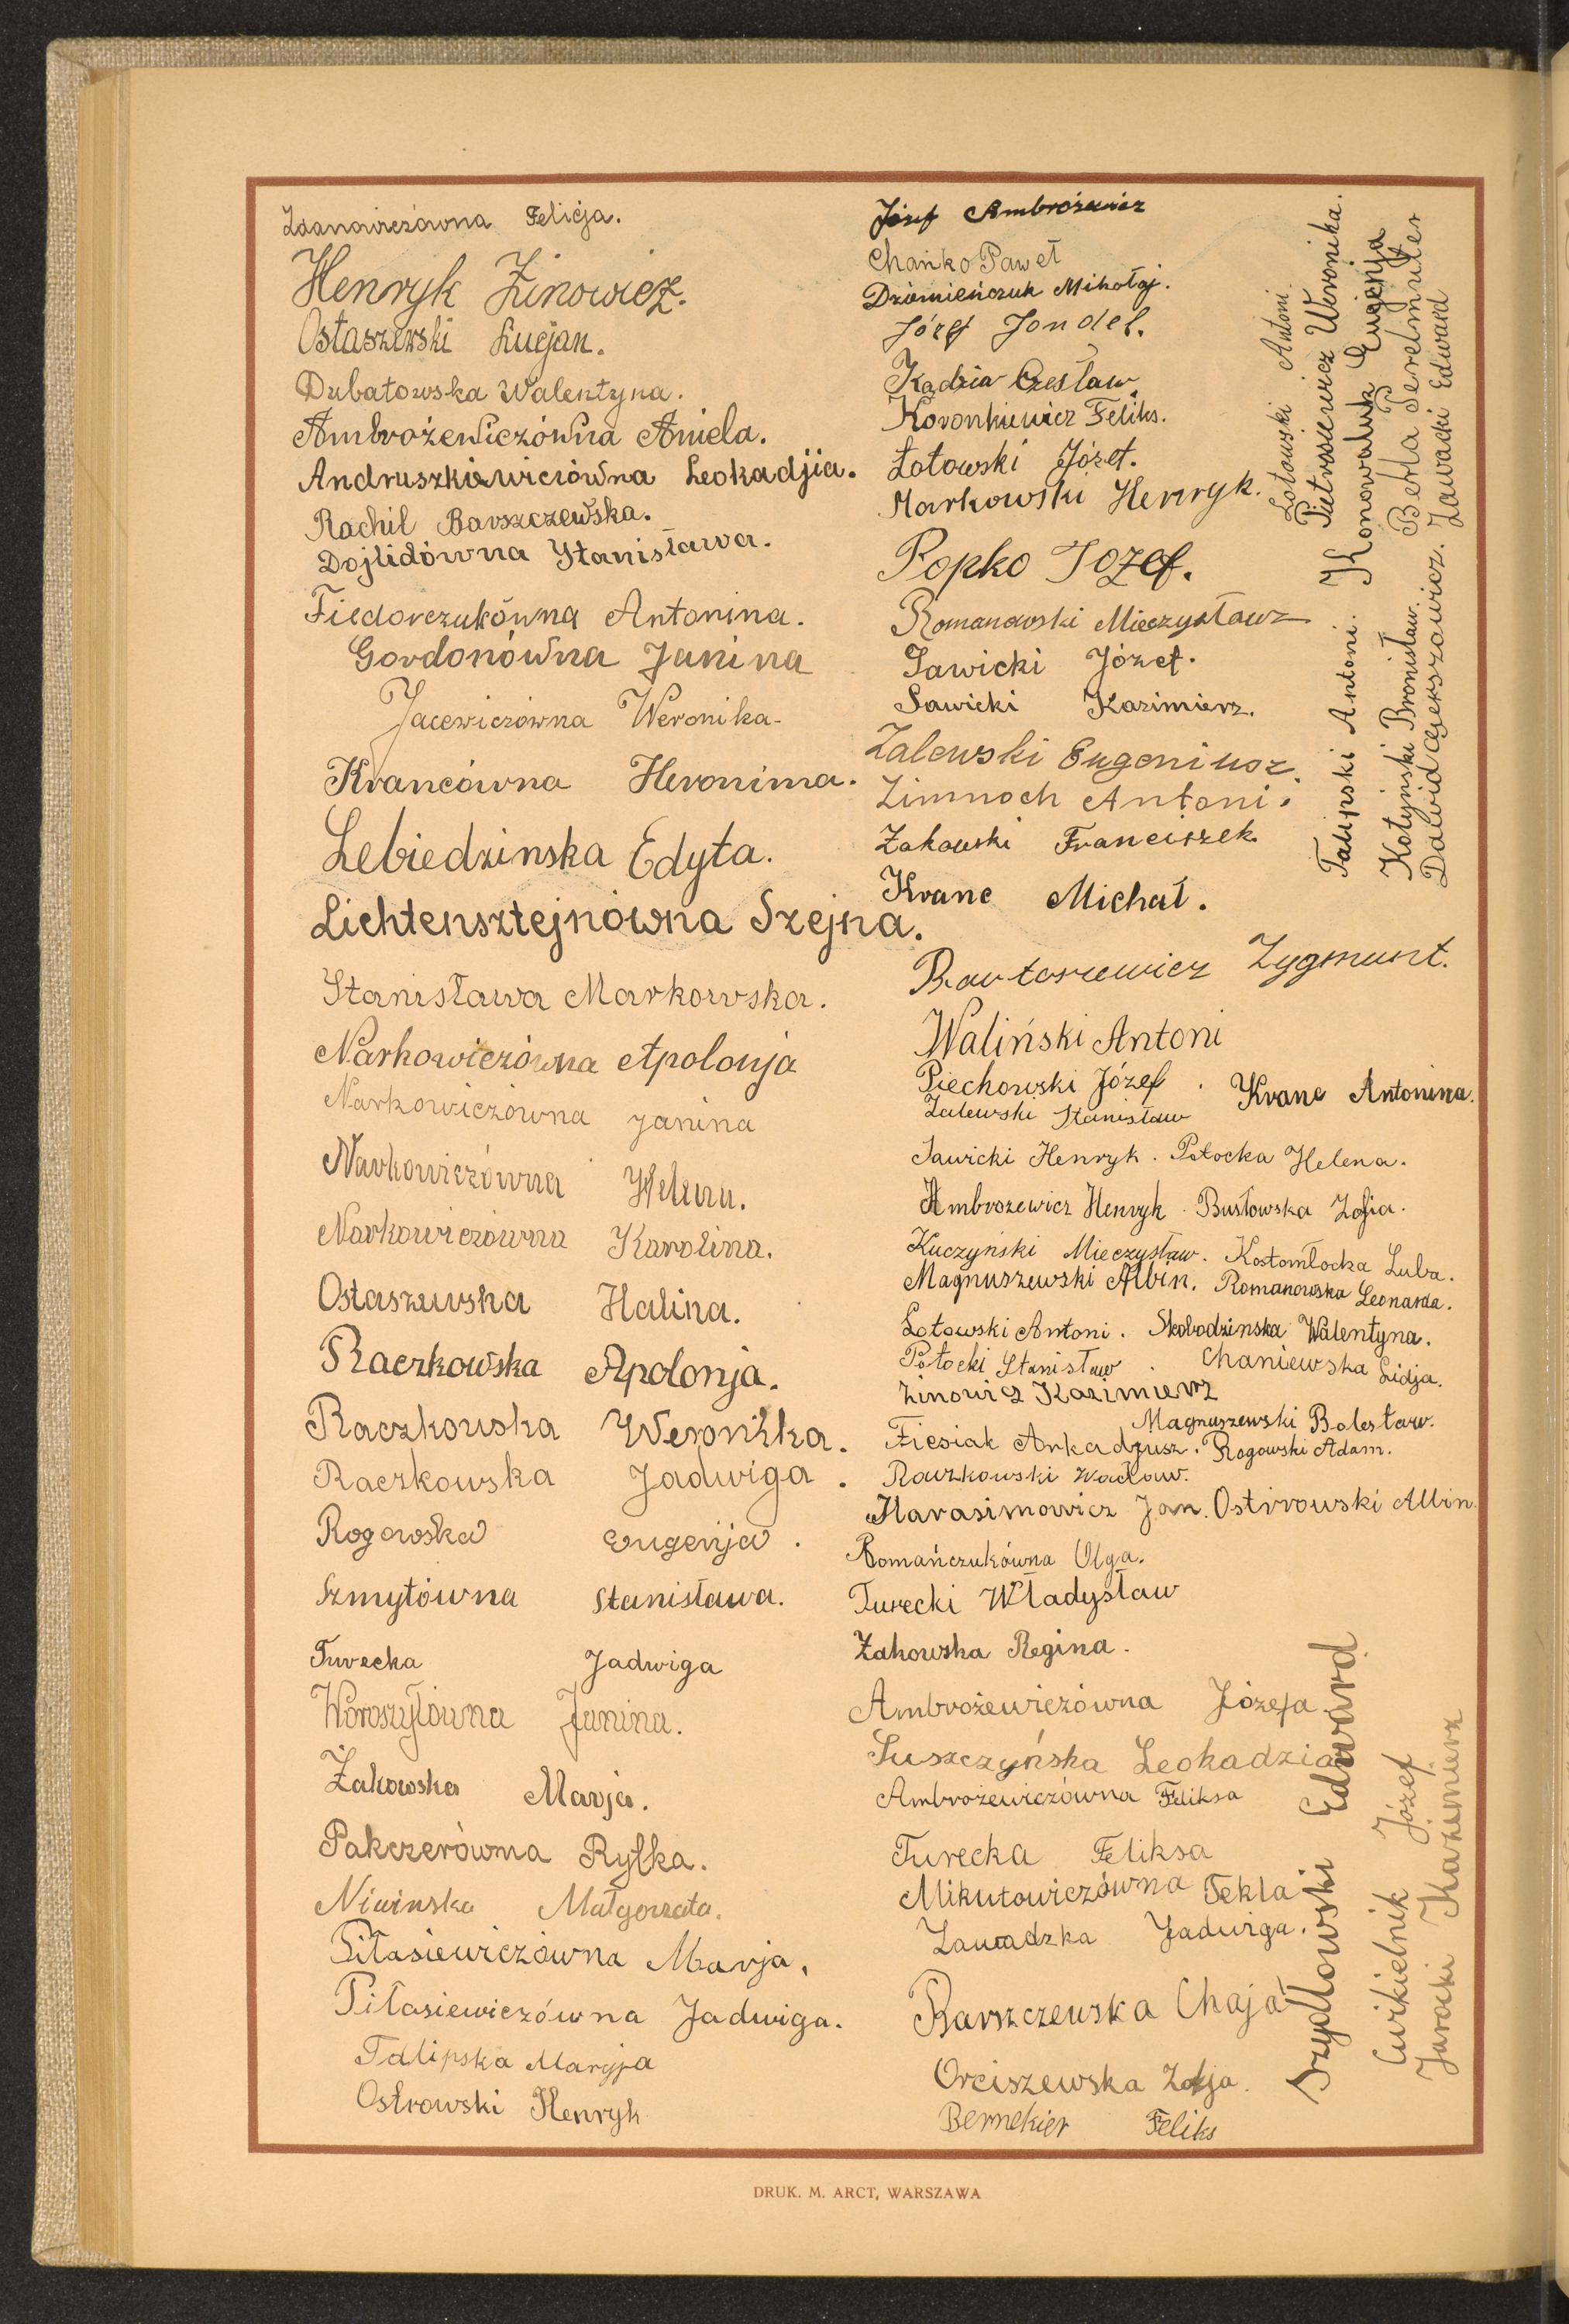 Zdanowiczówna Felicja.
Henryk Zinowicz.
Ostaszewski Lucjan.
Dubatowska Walentyna.
Ambrożewiczówna Aniela.
Andruszkiewiciówna Leokadjia.
Rachil Barszczewska.
Dojlidówna Stanisława.
Fiedorczukówna Antonina.
Gordonówna Janina
Jacewiczówna Weronika.
Krancówna Heronima.
Lebiedzinska Edyta.
Lichtensztejnówna Szejna.
Stanisława Markowska.
Narkowiczówna Apolonja
Narkowiczówna Janina
Narkowiczówna Helena.
Narkowiczówna Karolina.
Ostaszewska Halina.
Raczkowska Apolonja.
Raczkowska Weronika.
Raczkowska Jadwiga.
Rogowska Eugenja.
Szmytówna Stanisława.
Turecka Jadwiga
Woroszyłówna Janina.
Żakowska Marja.
Pakczerówna Ryfka.
Niwinska Małgorzata.
Piłasiewiczówna Marja.
Piłasiewiczówna Jadwiga.
Talipska Maryja
Ostrowski Henryk
Józef Ambrożewicz
Chańko Paweł
Dziemieńczuk Mikołaj.
Józef Jondel.
Kądzia Czesław.
Koronkiewicz Feliks.
Łotowski Józef.
Markowski Henryk.
Popko Jozef.
Romanowski Mieczysław
Sawicki Józef.
Sawicki Kazimierz.
Zalewski Eugeniusz.
Zimnoch Antoni.
Żakowski Franciszek.
Kranc Michał.
Bartoszewicz Zygmunt.
Waliński Antoni
Piechowski Józef. Kranc Antonina.
Zalewski Stanisław
Sawicki Henryk. Potocka Helena.
Ambrozewicz Henryk. Busłowska Zofia.
Kuczyński Mieczysław. Kostomłocka Luba.
Magnuszewski Albin. Romanowska Leonarda.
Łotowski Antoni. Skobodzinska Walentyna.
Potocki Stanisław. Chaniewska Lidja.
Zinowicz Kazimierz
Magnuszewski Bolesław.
Fiesiak Arkadjusz. Rogowski Adam.
Raczkowski Wacław.
Harasimowicz Jan. Ostrrowski Albin.
Romańczukówna Olga.
Turecki Władysław
Żakowska Regina.
Ambrożewiczówna Józefa
Suszczyńska Leokadzia
Ambrożewiczówna Feliksa
Turecka Feliksa
Mikutowiczówna Tekla
Zawadzka Jadwiga.
Barszczewska Chaja
Orciszewska Zofja.
Bernekier Feliks
Łotowski Antoni.
Pietrasiewicz Weronika.
Talipski Antoni. Konowaluk Eugenja
Kotyński Bronisław. Berta Perelmuter
Dawid Gierszowicz. Zawacki Edward
Szydłowski Edward
Cwikielnik Józef
Jarocki Kazimierz
DRUK. M. ARCT, WARSZAWA